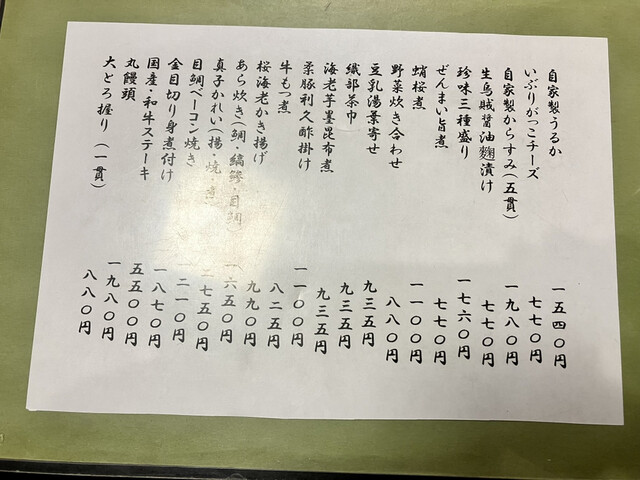 自家製うるか 一五四〇円
いぶりがっこチーズ 七七〇円
自家製からすみ(五貫) 一九八〇円
生烏賊醤油麴漬け 七七〇円
珍味三種盛り 一七六〇円
ぜんまい旨煮 七七〇円
蛸桜煮 一一〇〇円
野菜炊き合わせ 八八〇円
豆乳湯葉寄せ 九三五円
織部茶巾 九三五円
海老芋墨昆布煮 九三五円
柔豚利久酢掛け 一一〇〇円
牛もつ煮 八二五円
桜海老かき揚げ 九九〇円
あら炊き(鯛・縞鯵・目鯛) 一六五〇円
真子かれい(揚・焼・煮) 二七五〇円
目鯛ベーコン焼き 一二一〇円
金目切り身煮付け 一八七〇円
国産・和牛ステーキ 五五〇〇円
丸饅頭 一九八〇円
大とろ握り(一貫) 八八〇円